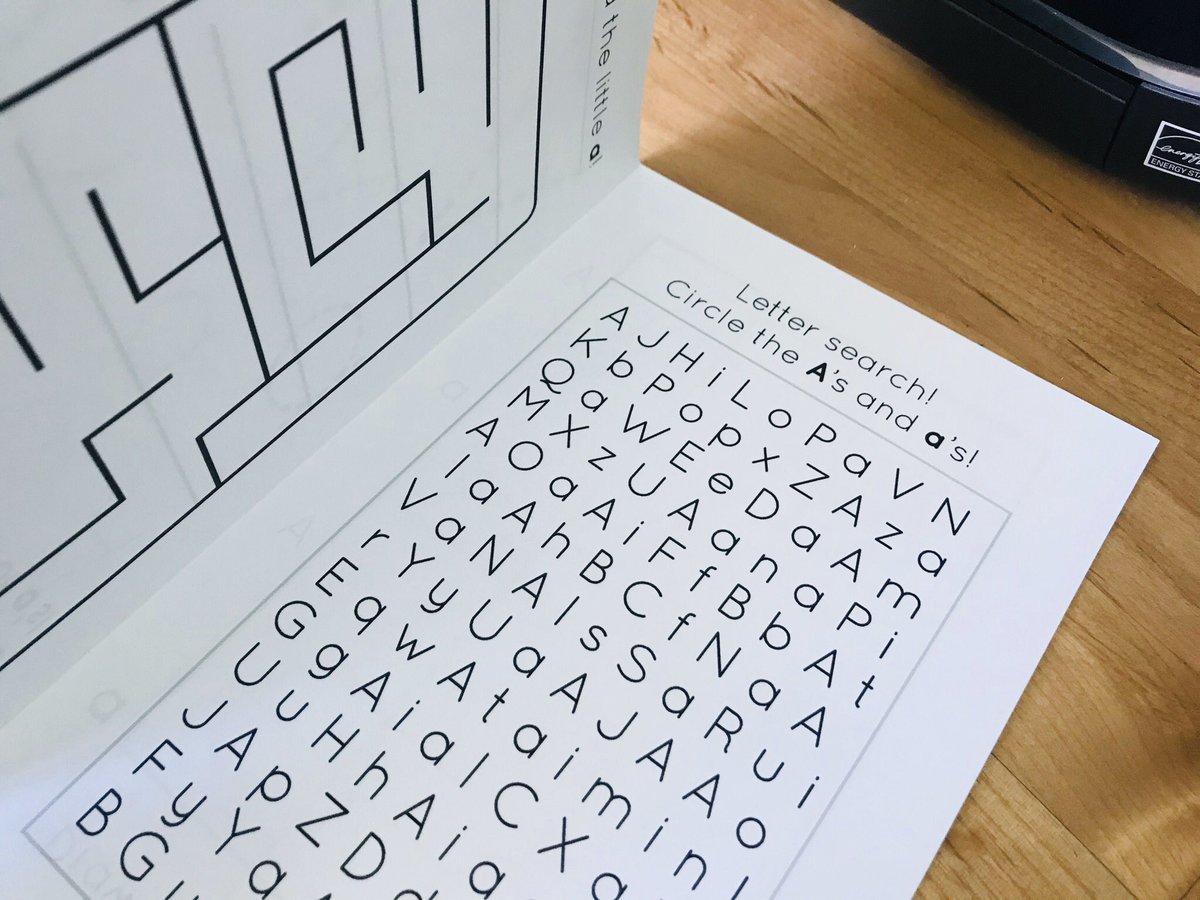 the little a!
Letter search!
Circle the A's and a's!
A J H i L o P a V N
K b P o p x Z A z a
Q a W E e D a A m
M X z U A a n a P i
A O a A i F f B b A t
I a A h B C f N a A
V a N A l s S a R u i
r Y y U a A J A A o
E a w A t a i m i n l
G g A i a l C X a
U u H h A i a
J A p Z D
F y Y a
B G
energy
ENERGY STA